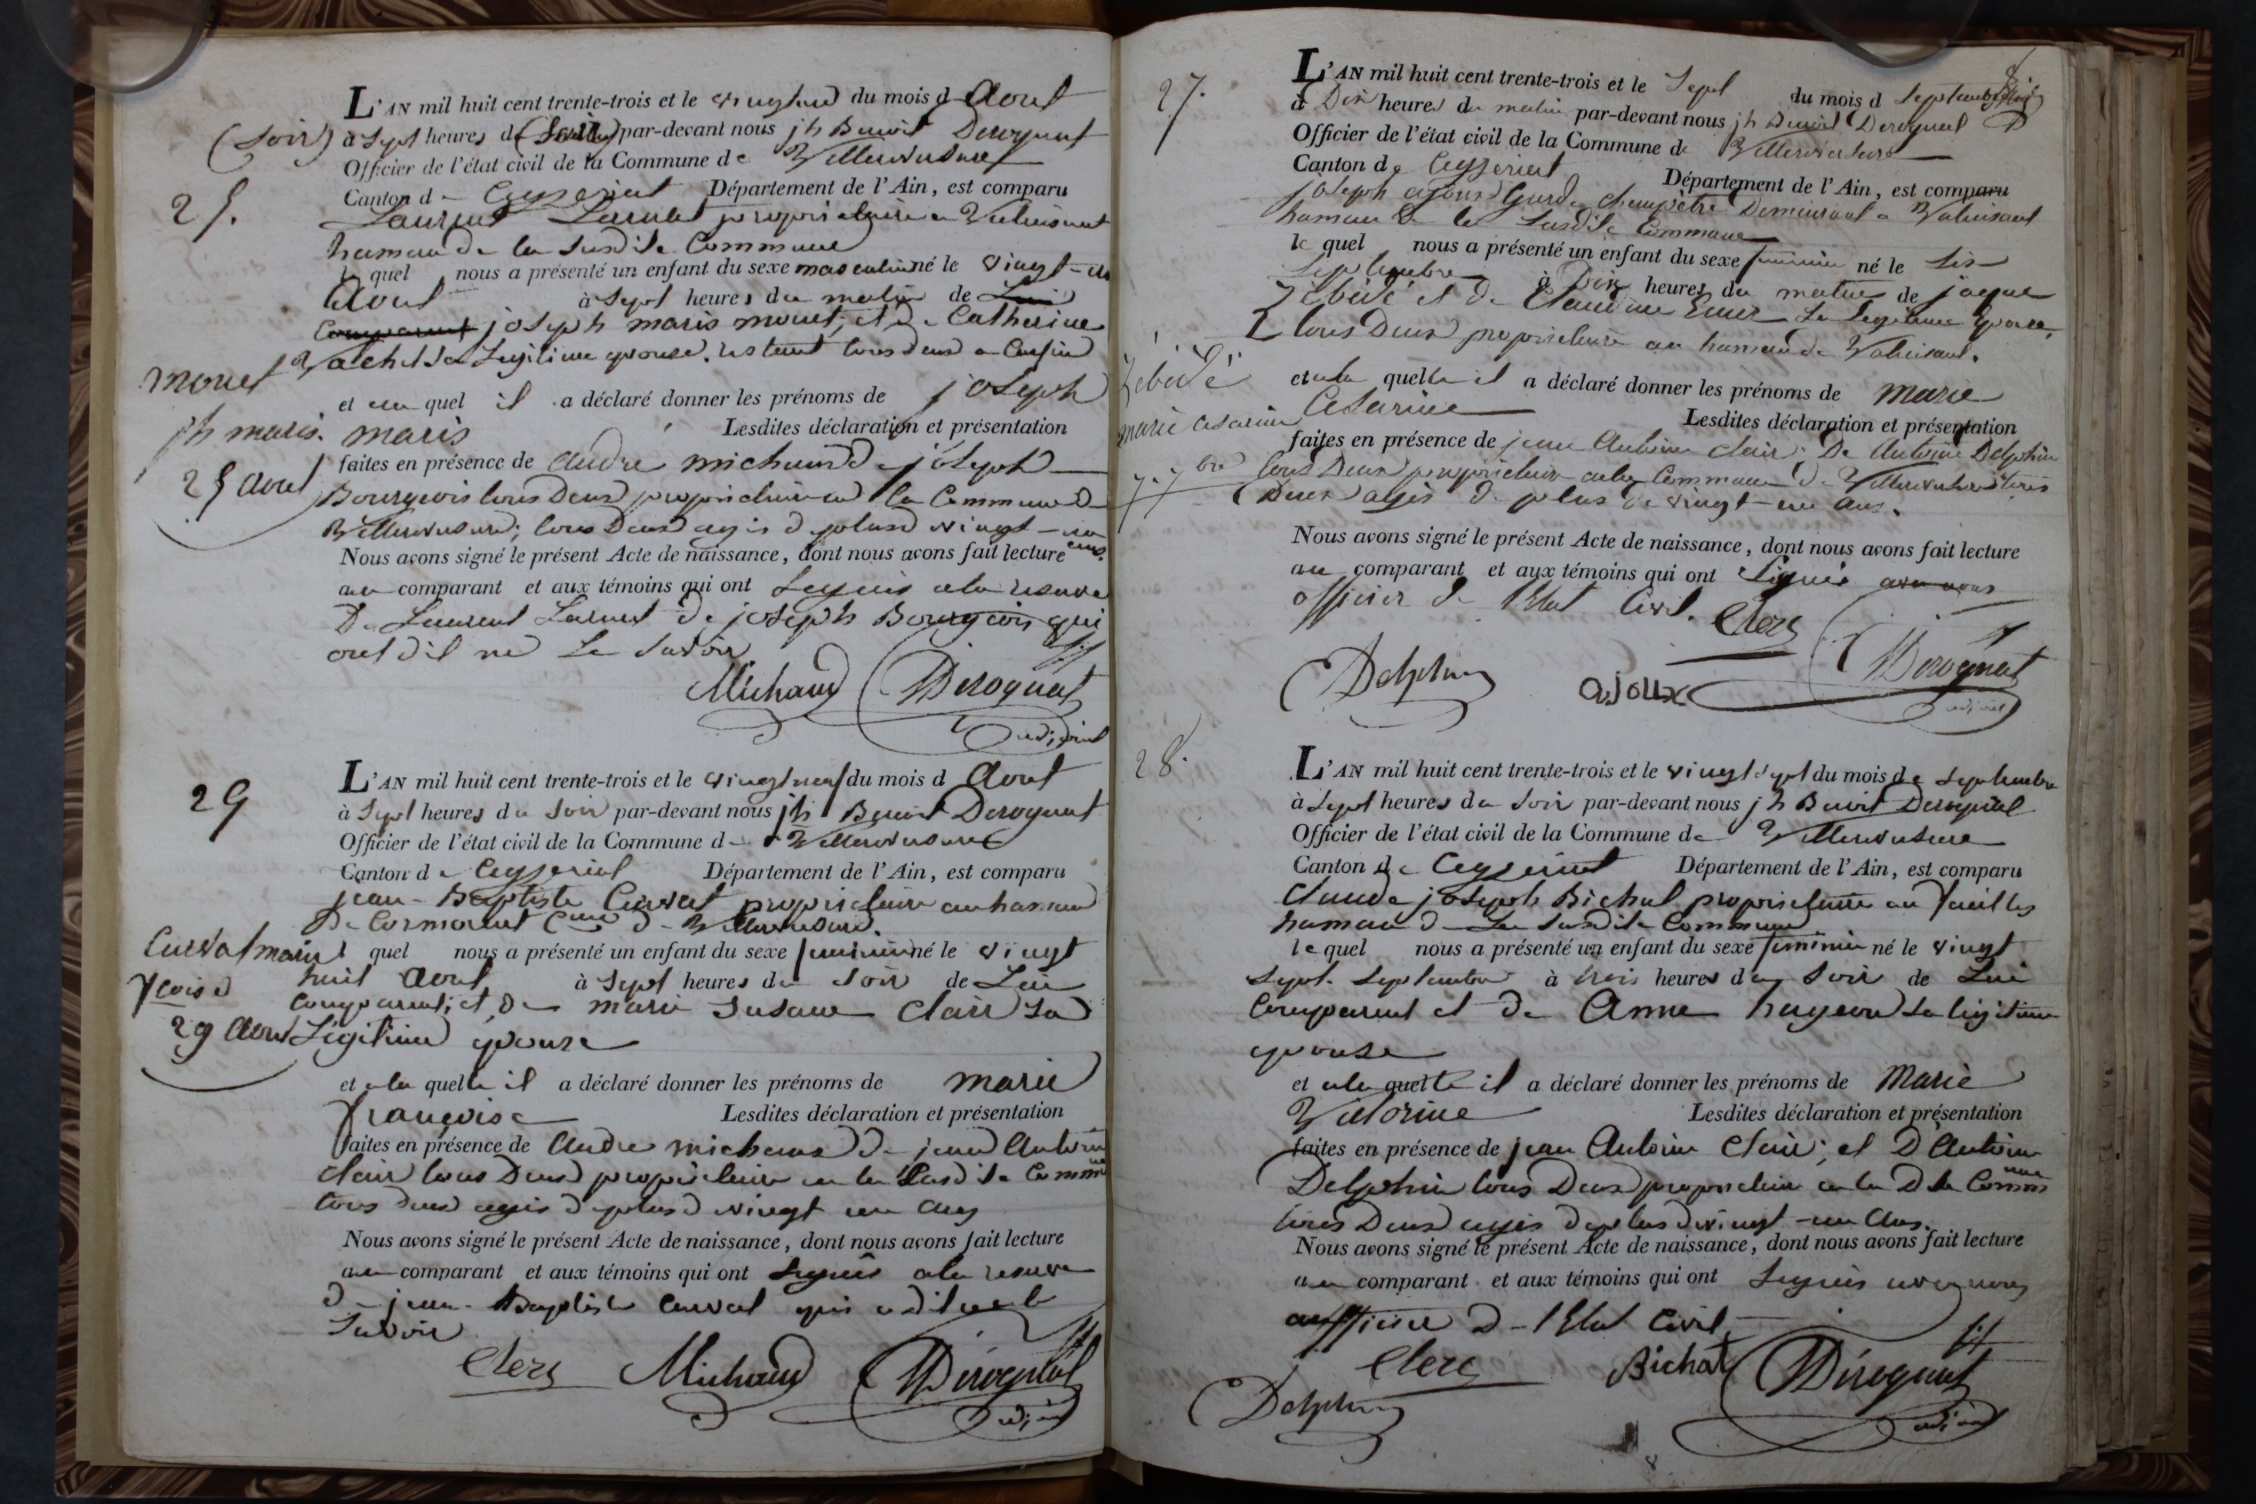 L'AN mil huit cent trente-trois et le du mois d Aout
(Soir) à Sept heures d (Soir) par-devant nous jh Benoit Derognat
Officier de l'état civil de la Commune de Villereversure
Canton de Ceyzeriat Département de l'Ain, est comparu
25.
Laurent propriétaire a
hameau de la susdite Commune
le quel nous a présenté un enfant du sexe masculin né le vingt-un
Aout à Sept heures du matin de Lui
Comparant joseph marie monet; et de Catherine
Vachet Sa Legitime epouse. tous deux a
monet
et au quel il a déclaré donner les prénoms de joseph
jh marie. marie Lesdites déclaration et présentation
faites en présence de andré michaud de joseph
25 aout Bourgeois tous deux propriétaire en la Commune de
Villereversure; tous deux agés de plus de vingt-un
ans.
Nous avons signé le présent Acte de naissance, dont nous avons fait lecture
au comparant et aux témoins qui ont Signés a la reserve
De Laurent De joseph Bourgeois qui
ont dit ne Le Savoir
Michaud Derognat
adjoint
29
L'AN mil huit cent trente-trois et le vingt neuf du mois d Aout
à Sept heures du Soir par-devant nous jh Benoit Derognat
Officier de l'état civil de la Commune de Villereversure
Canton de Ceyzeriat Département de l'Ain, est comparu
jean-Baptiste Curvat propriétaire au hameau
De Cormorent Cune de Villereversure.
Curvat marie
le quel nous a présenté un enfant du sexe feminin né le vingt
fcoise
huit Aout à Sept heures du Soir de Lui
comparant; et de marie Susane Clair Sa
29 Aout Légitime épouse
et a la quelle il a déclaré donner les prénoms de marie
françoise Lesdites déclaration et présentation
faites en présence de andre michaud de jean Antoine
Clair tous Deux propriétaire en la Susdite Commune
tous deux agés de plus de vingt un ans
Nous avons signé le présent Acte de naissance, dont nous avons fait lecture
au comparant et aux témoins qui ont Signés a la reserve
de jean-Baptiste Curvat qui a dit ne le
Savoir
Clerc Michaud Derognat
adjoint
27.
L'AN mil huit cent trente-trois et le Sept du mois d Septembre
à Dix heures du matin par-devant nous jh Benoit Derognat
Officier de l'état civil de la Commune de Villereversure
Canton de Ceyzeriat Département de l'Ain, est comparu
joseph ajoux Garde champêtre Demeurant a
hameau De la Susdite Commune
le quel nous a présenté un enfant du sexe feminin né le Six
Septembre à Dix heures du matin de jaque
Zébédé et de Claudine Sa Legitime Epouse,
tous Deux propriétaire au hameau de
Zébédé
et a la quelle il a déclaré donner les prénoms de Marie
marie césarine Césarine Lesdites déclaration et présentation
faites en présence de jean Antoine Clair; De Antoine Delphin
7. 7bre tous Deux propriétaire en la Commune de Villereversure tous
Deux agés de plus de vingt-un ans.
Nous avons signé le présent Acte de naissance, dont nous avons fait lecture
au comparant et aux témoins qui ont Signés avec nous
officier de l'Etat Civil. Clerc
Delphin ajoux Derognat
adjoint
28.
L'AN mil huit cent trente-trois et le vingt sept du mois de Septembre
à Sept heures du Soir par-devant nous jh Benoit Derognat
Officier de l'état civil de la Commune de Villereversure
Canton de Ceyzeriat Département de l'Ain, est comparu
Claude joseph Bichat propriétaire au
hameau de La Susdite Commune
le quel nous a présenté un enfant du sexe feminin né le vingt
Sept. Septembre à trois heures du Soir de Lui
Comparant et de Anne hugeon Sa légitime
epouse
et a la quelle il a déclaré donner les prénoms de Marie
Victorine Lesdites déclaration et présentation
faites en présence de jean Antoine Clair; et D'Antoine
Delphin tous Deux propriétaire en la Dte Commune
tous Deux agés de plus de vingt-un Ans.
Nous avons signé le présent Acte de naissance, dont nous avons fait lecture
au comparant et aux témoins qui ont Signés avec nous
officier de l'Etat Civil
Clerc Bichat Derognat
Delphin adjoint